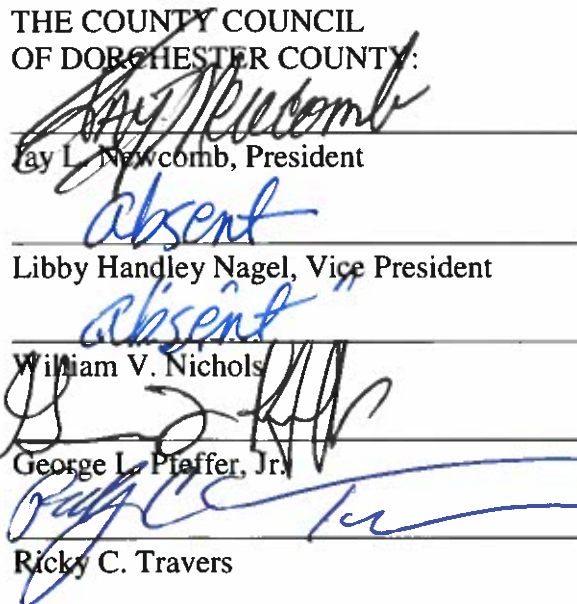 THE COUNTY COUNCIL
OF DORCHESTER COUNTY:
Jay Newcomb
Jay L. Newcomb, President
absent
Libby Handley Nagel, Vice President
"absent"
William V. Nichols
George L. Pfeffer, Jr.
Ricky C. Travers